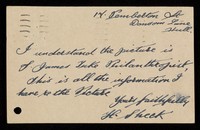 14 Pemberton St
Dansom Lane
Hull
I understand the picture is
of James Luke Philanthropist,
This is all the information I
have, re the Picture
Yours faithfully
H.